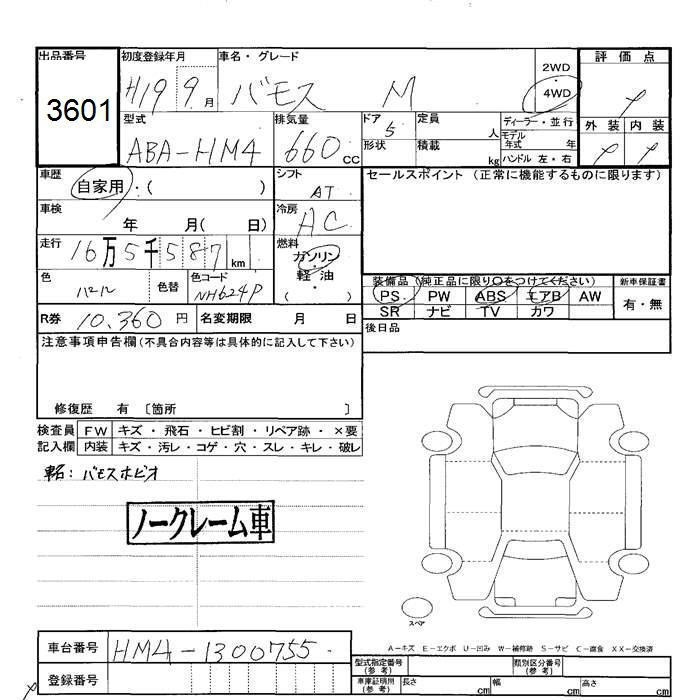 出品番号 初度登録年月 車名・グレード 2WD 評価点
3601 H19 9月 バモス M ・4WD
型式 排気量 ドア 5 定員 人 ディーラー・並行 外装 内装
ABA-HM4 660 cc 形状 積載 kg モデル年式 年
ハンドル 左・右
車歴 自家用・( ) シフト AT セールスポイント (正常に機能するものに限ります)
車検 年 月( 日) 冷房 AC
走行 16万5千587km 燃料 ガソリン・軽油
・( )
色 パール 色替 色コード NH624P
装備品 (純正品に限り○をつけてください) 新車保証書
PS PW ABS エアB AW 有・無
SR ナビ TV カワ
R券 10,360円 名変期限 月 日 後日品
注意事項申告欄(不具合内容等は具体的に記入して下さい)
修復歴 有 〔箇所 〕
検査員 FW キズ・飛石・ヒビ割・リペア跡・×要
記入欄 内装 キズ・汚レ・コゲ・穴・スレ・キレ・破レ
車名:バモスホビオ
ノークレーム車
スペア
A-キズ E-エクボ U-凹み W-補修跡 S-サビ C-腐食 XX-交換済
車台番号 HM4-1300755
登録番号
型式指定番号(参考) 類別区分番号(参考)
車庫証明用(参考) 長さ cm 幅 cm 高さ cm